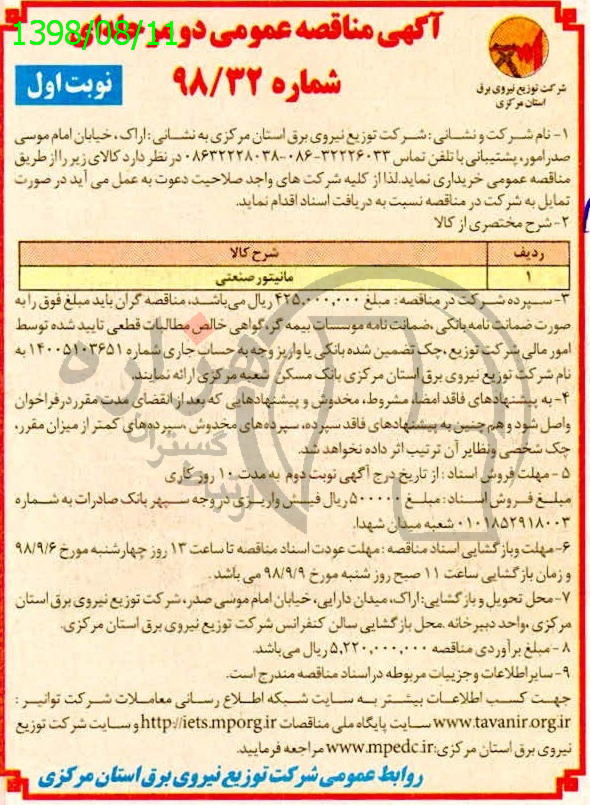 1398/08/11
آگهی مناقصه عمومی دو مرحله‌ای
شماره ۹۸/۳۲
نوبت اول
شرکت توزیع نیروی برق
استان مرکزی
۱- نام شرکت و نشانی: شرکت توزیع نیروی برق استان مرکزی به نشانی: اراک، خیابان امام موسی
صدر امور، پشتیبانی با تلفن تماس ۳۲۲۲۶۰۳۳-۰۸۶-۰۸۶۳۲۲۲۸۰۳۸ در نظر دارد کالای زیر را از طریق
مناقصه عمومی خریداری نماید. لذا از کلیه شرکت های واجد صلاحیت دعوت به عمل می آید در صورت
تمایل به شرکت در مناقصه نسبت به دریافت اسناد اقدام نماید.
۲- شرح مختصری از کالا
ردیف شرح کالا
۱ مانیتور صنعتی
۳- سپرده شرکت در مناقصه: مبلغ ۴۲۵,۰۰۰,۰۰۰ ریال می‌باشد، مناقصه گران باید مبلغ فوق را به
صورت ضمانت نامه بانکی، ضمانت نامه موسسات بیمه گر، گواهی خالص مطالبات قطعی تایید شده توسط
امور مالی شرکت توزیع، چک تضمین شده بانکی یا واریز وجه به حساب جاری شماره ۱۴۰۰۵۱۰۳۶۵۱ به
نام شرکت توزیع نیروی برق استان مرکزی بانک مسکن شعبه مرکزی ارائه نمایند.
۴- به پیشنهادهای فاقد امضا، مشروط، مخدوش و پیشنهادهایی که بعد از انقضای مدت مقرر در فراخوان
واصل شود و هم چنین به پیشنهادهای فاقد سپرده، سپرده های مخدوش، سپرده های کمتر از میزان مقرر،
چک شخصی و نظایر آن ترتیب اثر داده نخواهد شد.
۵- مهلت فروش اسناد: از تاریخ درج آگهی نوبت دوم به مدت ۱۰ روز کاری
مبلغ فروش اسناد: مبلغ ۵۰۰۰۰۰ ریال فیش واریزی در وجه سپهر بانک صادرات به شماره
۰۱۰۱۸۵۲۹۱۸۰۰۳ شعبه میدان شهدا.
۶- مهلت و بازگشایی اسناد مناقصه: مهلت عودت اسناد مناقصه تا ساعت ۱۳ روز چهارشنبه مورخ ۹۸/۹/۶
و زمان بازگشایی ساعت ۱۱ صبح روز شنبه مورخ ۹۸/۹/۹ می باشد.
۷- محل تحویل و بازگشایی: اراک، میدان دارایی، خیابان امام موسی صدر، شرکت توزیع نیروی برق استان
مرکزی، واحد دبیرخانه. محل بازگشایی سالن کنفرانس شرکت توزیع نیروی برق استان مرکزی.
۸- مبلغ برآوردی مناقصه ۵,۲۲۰,۰۰۰,۰۰۰ ریال می‌باشد.
۹- سایر اطلاعات و جزییات مربوطه در اسناد مناقصه مندرج است.
جهت کسب اطلاعات بیشتر به سایت شبکه اطلاع رسانی معاملات شرکت توانیر:
www.tavanir.org.ir سایت پایگاه ملی مناقصات http://iets.mporg.ir و سایت شرکت توزیع
نیروی برق استان مرکزی: www.mpedc.ir مراجعه فرمایید.
روابط عمومی شرکت توزیع نیروی برق استان مرکزی